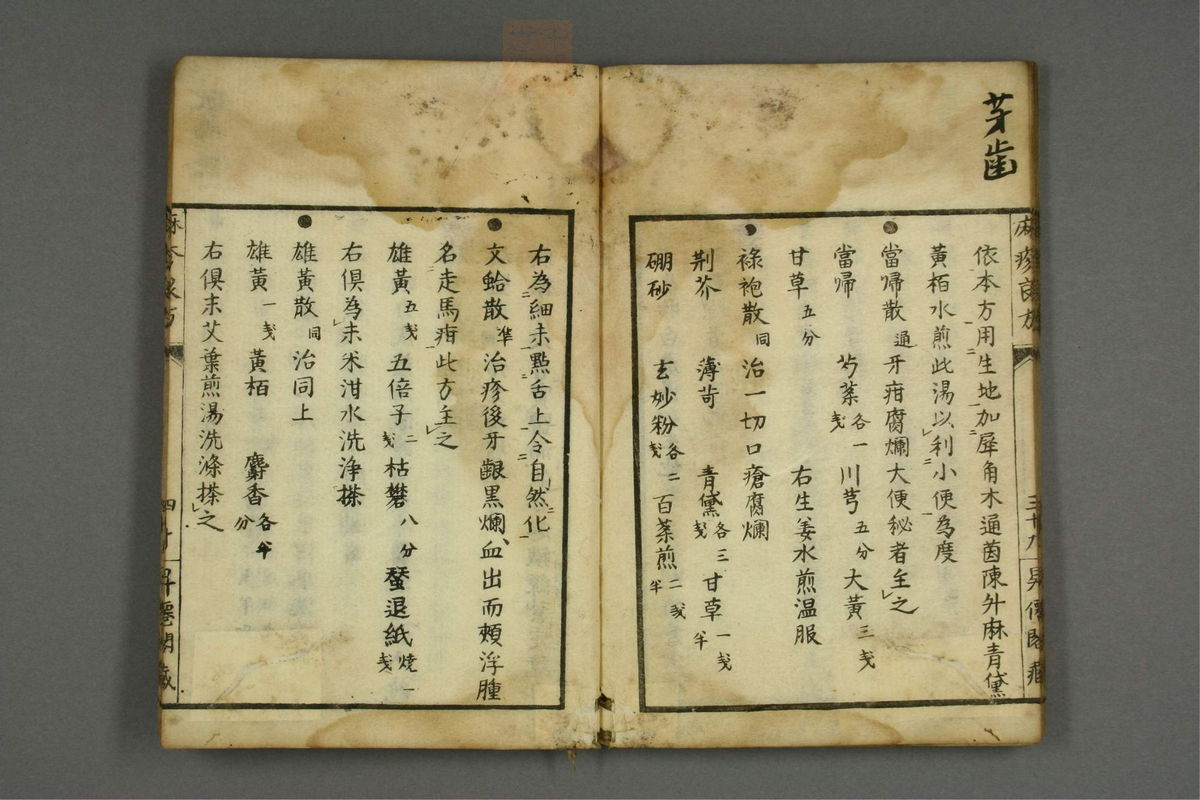 芽歯
麻疹良方
三十八
昇僊閣蔵
依本方用生地加犀角木通茵陳升麻青黛
黄栢水煎此湯以利小便為度
當帰散 通 牙疳腐爛大便秘者主之
當帰 芍薬 各一戔 川芎 五分 大黄 三戔
甘草 五分 右生姜水煎温服
祿袍散 同 治一切口瘡腐爛
荆芥 薄苛 青黛 各三戔 甘草 一戔半
硼砂 玄妙粉 各二戔 百薬煎 二戔半
右為細末點舌上令自然化
文蛤散 準 治疹後牙齦黒爛血出而頬浮腫
名走馬疳此方主之
雄黄 五戔 五倍子 二戔 枯礬 八分 蚕退紙 焼一戔
右倶為末米泔水洗浄搽
雄黄散 同 治同上
雄黄 一戔 黄栢 麝香 各半分
右倶末艾葉煎湯洗滌搽之
昇僊閣蔵